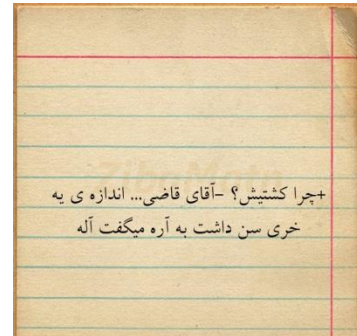 ZibaMatn
+چرا کشتیش؟ -آقای قاضی... اندازه ی یه
خری سن داشت به آره میگفت آله